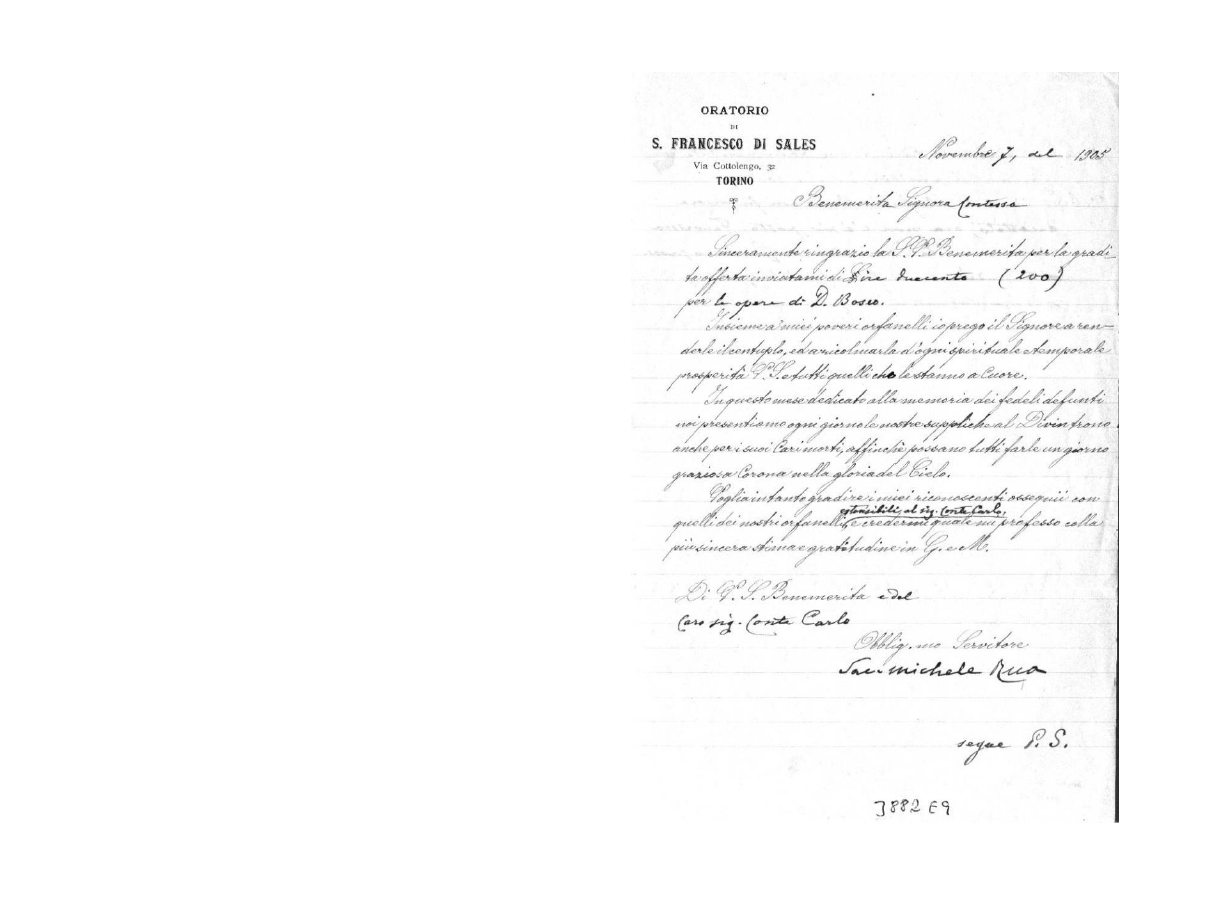 ORATORIO
DI
S. FRANCESCO DI SALES
Via Cottolengo, 32
TORINO
Novembre 7, del 1905
Benemerita Signora Contessa
Sinceramente ringrazio la S. V. Benemerita per la gradi-
ta offerta inviatami di Lire duecento (200)
per le opere di D. Bosco.
Insieme a' miei poveri orfanelli io prego il Signore a ren-
derle il centuplo, ed a ricolmarla d'ogni spirituale e temporale
prosperità V. S. e tutti quelli che le stanno a Cuore.
In questo mese dedicato alla memoria dei fedeli defunti
noi presentiamo ogni giorno le nostre suppliche al Divin trono
anche per i suoi Cari morti, affinchè possano tutti farle un giorno
graziosa Corona nella gloria del Cielo.
Voglia intanto gradire i miei riconoscenti ossequii con
estensibili al sig. Conte Carlo,
quelli dei nostri orfanelli, e credermi quale mi professo colla
più sincera stima e gratitudine in G. e M.
Di V. S. Benemerita e del
Caro sig. Conte Carlo
Obblig.mo Servitore
Sac. Michele Rua
segue P. S.
3882 E9